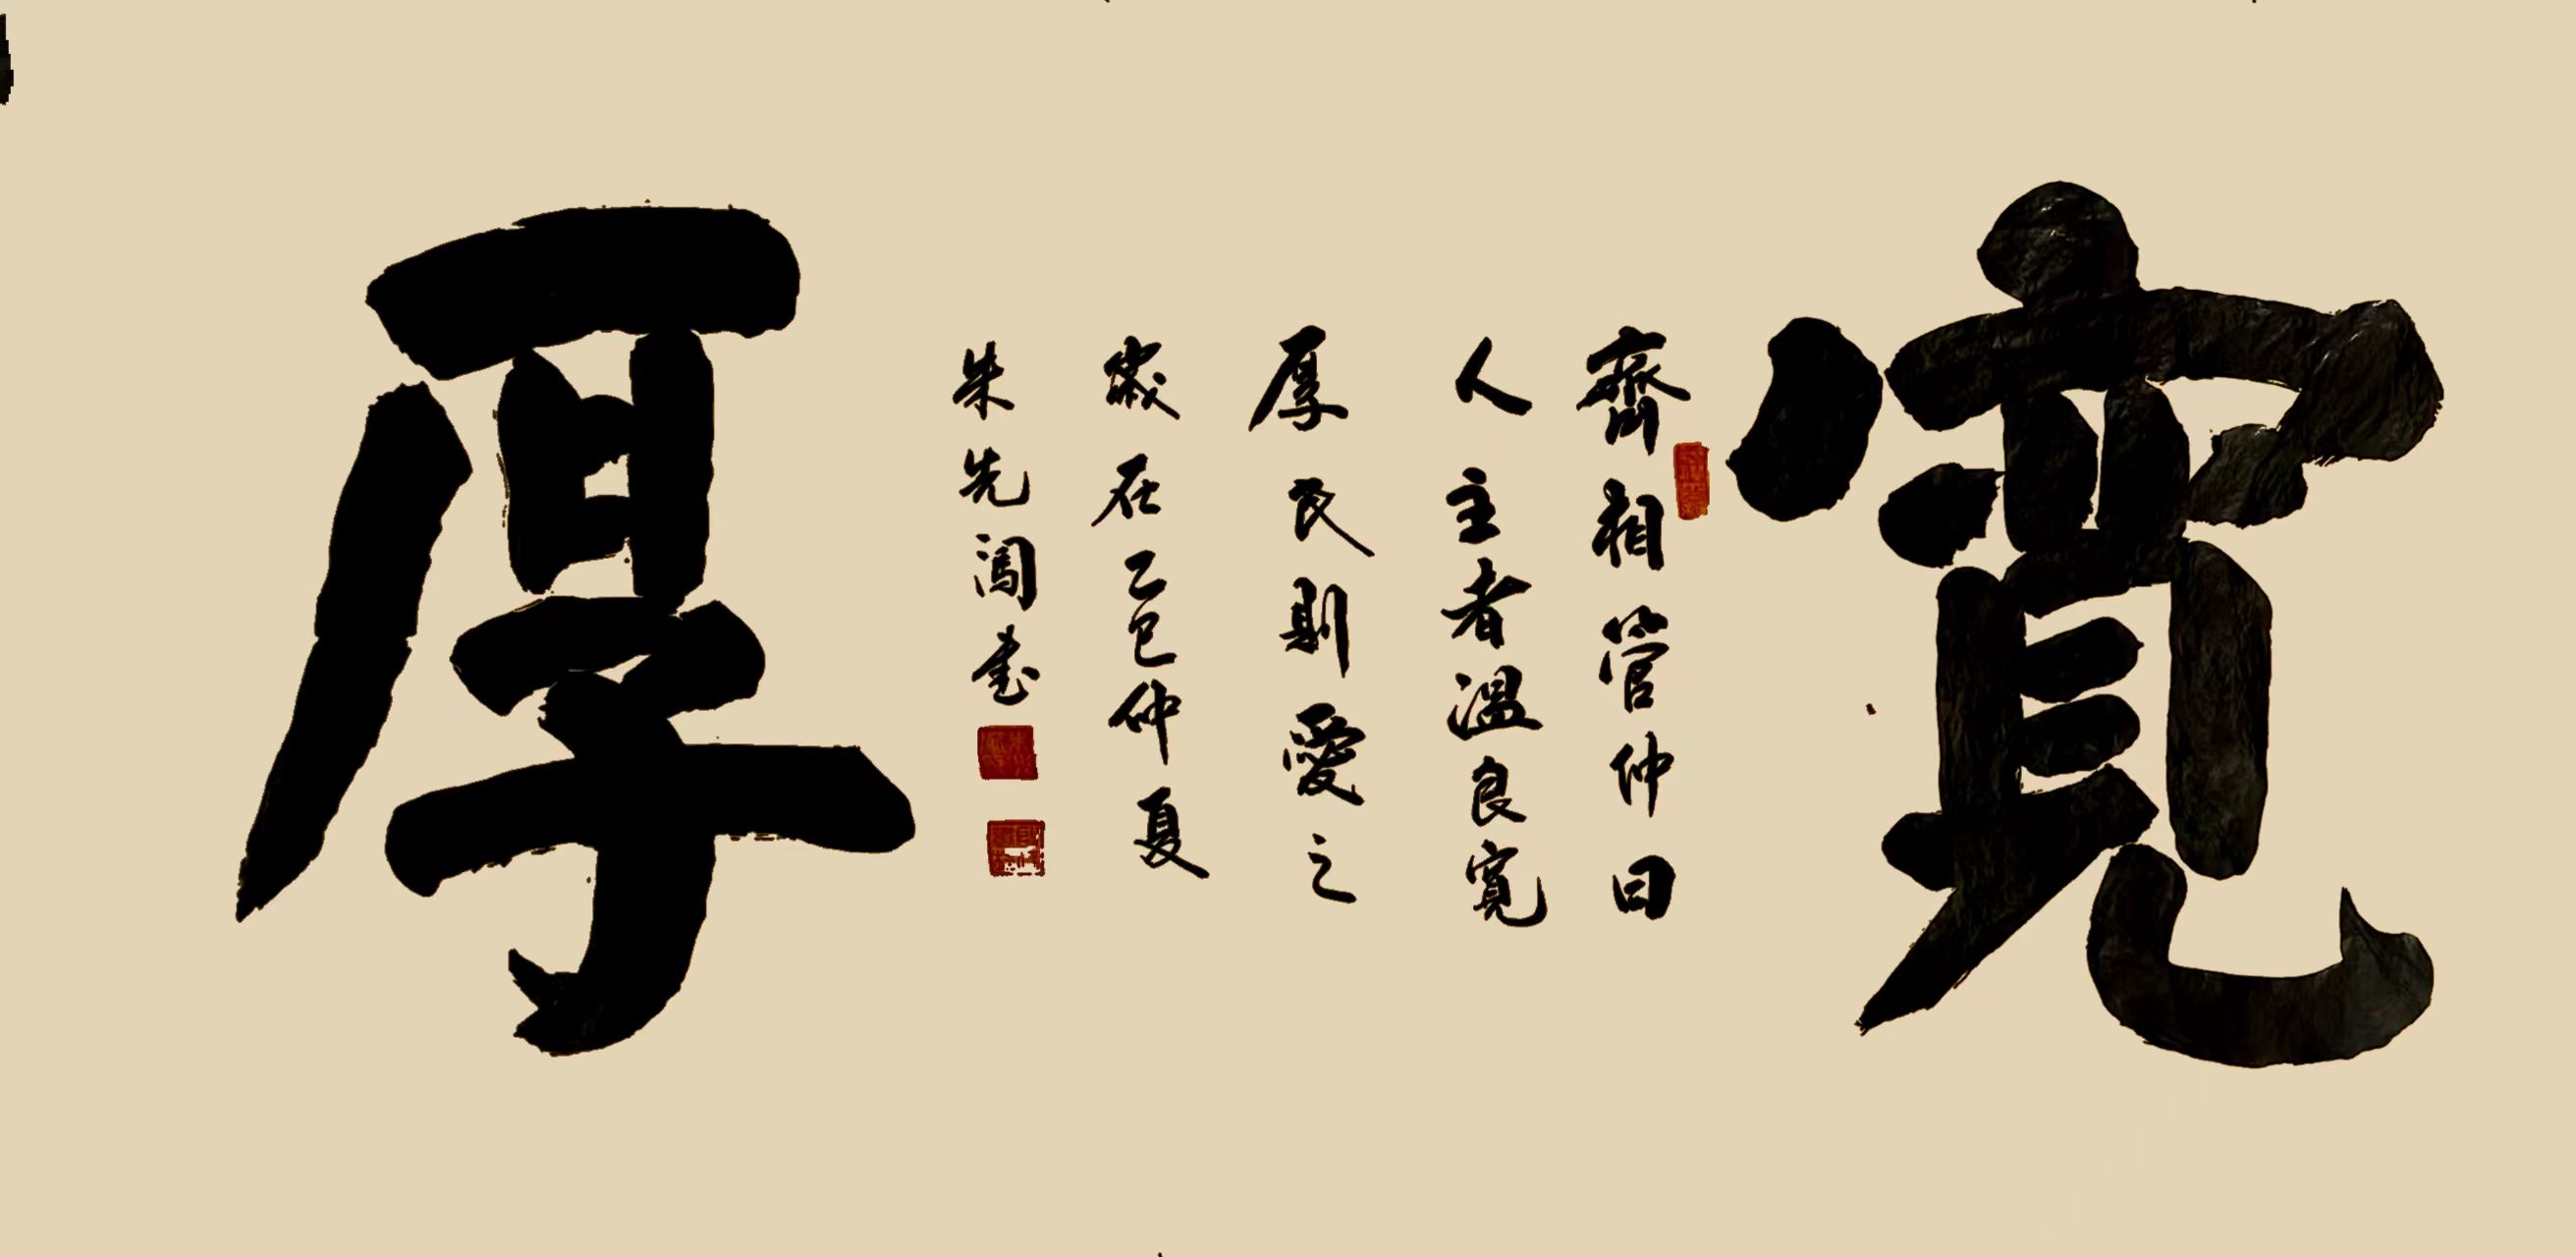 寬
齊相管仲曰
人主者溫良寬
厚民則愛之
歲在乙巳仲夏
朱先闯書
厚